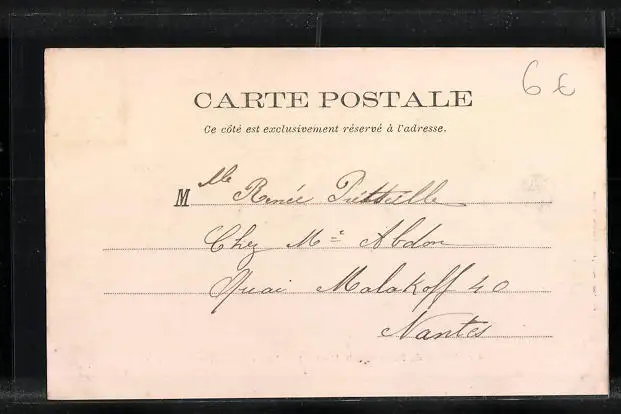 6 €
CARTE POSTALE
Ce côté est exclusivement réservé à l'adresse.
Mlle Renée
Chez Me Abdon
Quai Malakoff 40
Nantes